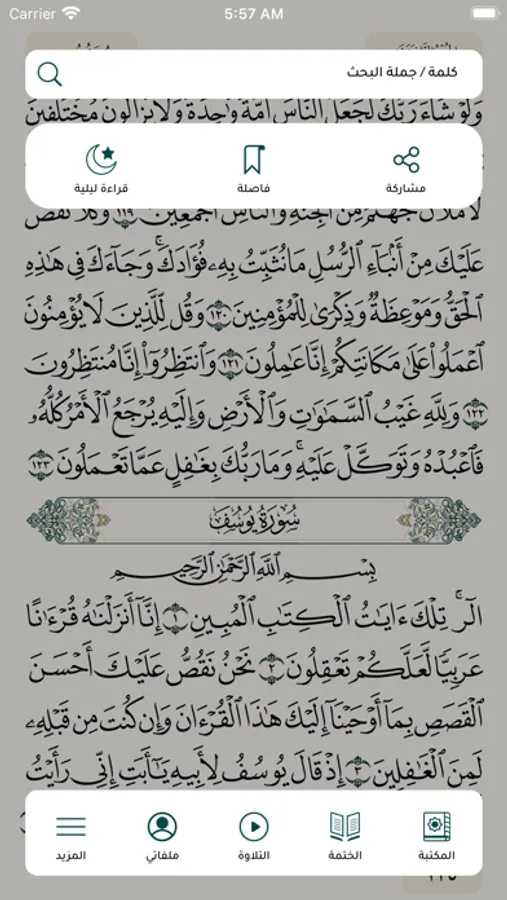 Carrier 5:57 AM
كلمة / جملة البحث
وَلَوْ شَآءَ رَبُّكَ لَجَعَلَ ٱلنَّاسَ أُمَّةً وَٰحِدَةً وَلَا يَزَالُونَ مُخْتَلِفِينَ
مشاركة
فاصلة
قراءة ليلية
لَأَمْلَأَنَّ جَهَنَّمَ مِنَ ٱلْجِنَّةِ وَٱلنَّاسِ أَجْمَعِينَ ١١٩ وَكُلًّا نَّقُصُّ
عَلَيْكَ مِنْ أَنۢبَآءِ ٱلرُّسُلِ مَا نُثَبِّتُ بِهِۦ فُؤَادَكَ ۚ وَجَآءَكَ فِى هَٰذِهِ
ٱلْحَقُّ وَمَوْعِظَةٌ وَذِكْرَىٰ لِلْمُؤْمِنِينَ ١٢٠ وَقُل لِّلَّذِينَ لَا يُؤْمِنُونَ
ٱعْمَلُوا۟ عَلَىٰ مَكَانَتِكُمْ إِنَّا عَٰمِلُونَ ١٢١ وَٱنتَظِرُوٓا۟ إِنَّا مُنتَظِرُونَ
١٢٢ وَلِلَّهِ غَيْبُ ٱلسَّمَٰوَٰتِ وَٱلْأَرْضِ وَإِلَيْهِ يُرْجَعُ ٱلْأَمْرُ كُلُّهُۥ
فَٱعْبُدْهُ وَتَوَكَّلْ عَلَيْهِ ۚ وَمَا رَبُّكَ بِغَٰفِلٍ عَمَّا تَعْمَلُونَ ١٢٣
سُورَةُ يُوسُفَ
بِسْمِ ٱللَّهِ ٱلرَّحْمَٰنِ ٱلرَّحِيمِ
الٓر ۚ تِلْكَ ءَايَٰتُ ٱلْكِتَٰبِ ٱلْمُبِينِ ١ إِنَّآ أَنزَلْنَٰهُ قُرْءَٰنًا
عَرَبِيًّا لَّعَلَّكُمْ تَعْقِلُونَ ٢ نَحْنُ نَقُصُّ عَلَيْكَ أَحْسَنَ
ٱلْقَصَصِ بِمَآ أَوْحَيْنَآ إِلَيْكَ هَٰذَا ٱلْقُرْءَانَ وَإِن كُنتَ مِن قَبْلِهِۦ
لَمِنَ ٱلْغَٰفِلِينَ ٣ إِذْ قَالَ يُوسُفُ لِأَبِيهِ يَٰٓأَبَتِ إِنِّى رَأَيْتُ
المكتبة
الختمة
التلاوة
ملفاتي
المزيد